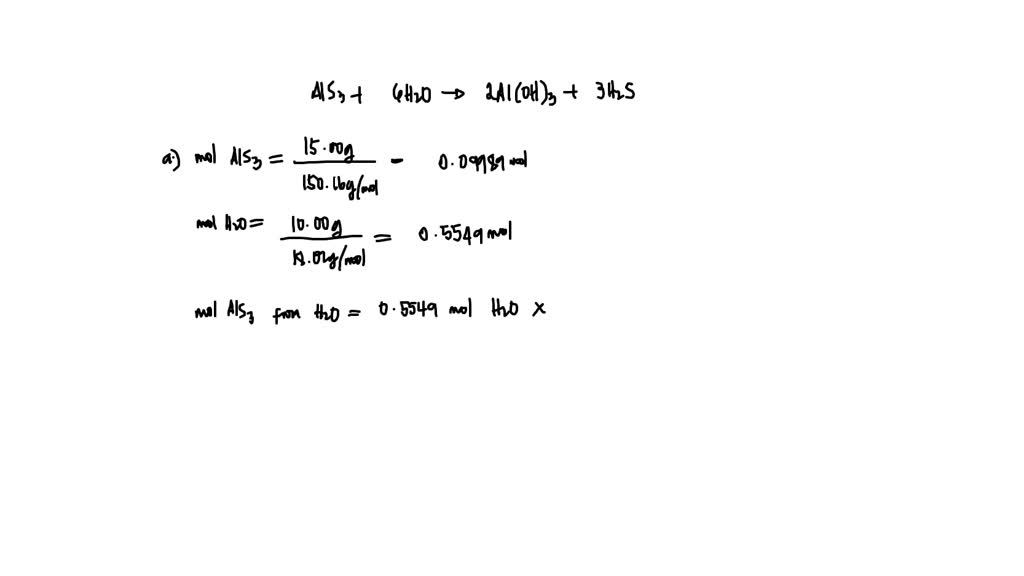 AlS₃ + 6H₂O → 2Al(OH)₃ + 3H₂S
a.) mol AlS₃ = 15.00g / 150.16g/mol - 0.09989 mol
mol H₂O = 10.00g / 18.02g/mol = 0.5549 mol
mol AlS₃ from H₂O = 0.5549 mol H₂O x